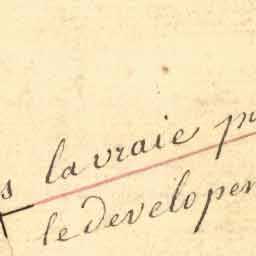 s la vraie pr
le developer